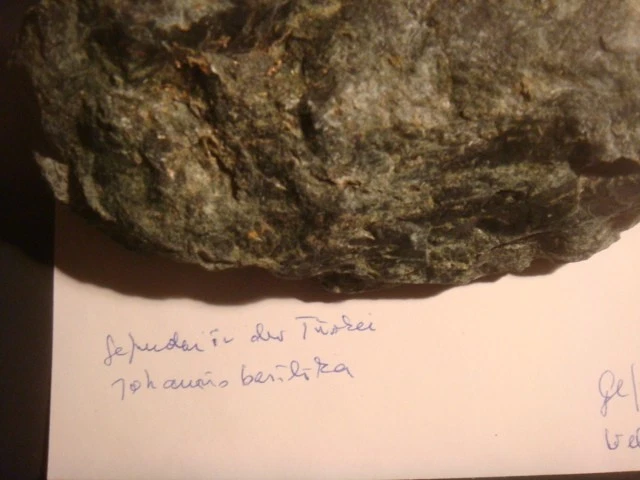 Gefunden in der Türkei
Johannisbasilika
Gef